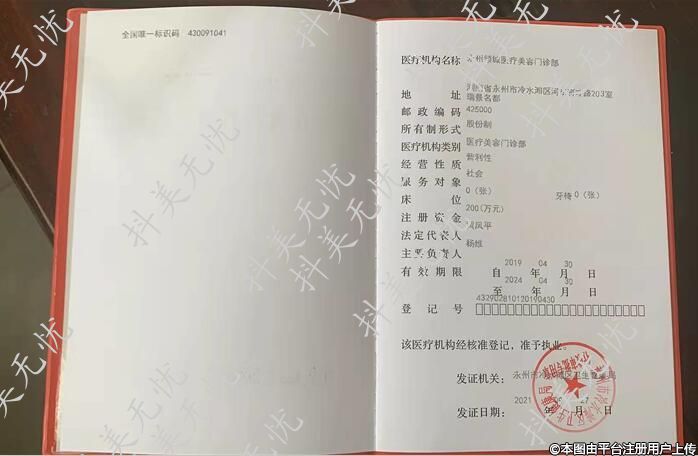 全国唯一标识码 430091041
医疗机构名称 医疗美容门诊部
地 址 永州市冷水滩区 203室
瑞景名都
邮政编码 425000
所有制形式 股份制
医疗机构类别 医疗美容门诊部
经营性质 营利性
服务对象 社会
床 位 0（张） 牙椅 0（张）
注册资金 200（万元）
法定代表人 凤平
主要负责人 杨维
有效期限 自 2019 年 04 月 30 日
至 2024 年 04 月 30 日
登记号 432902810120190430
该医疗机构经核准登记，准予执业。
发证机关： 永州市冷水滩区卫生健康局
发证日期： 2021 年 月 27 日
抖美无忧
©本图由平台注册用户上传